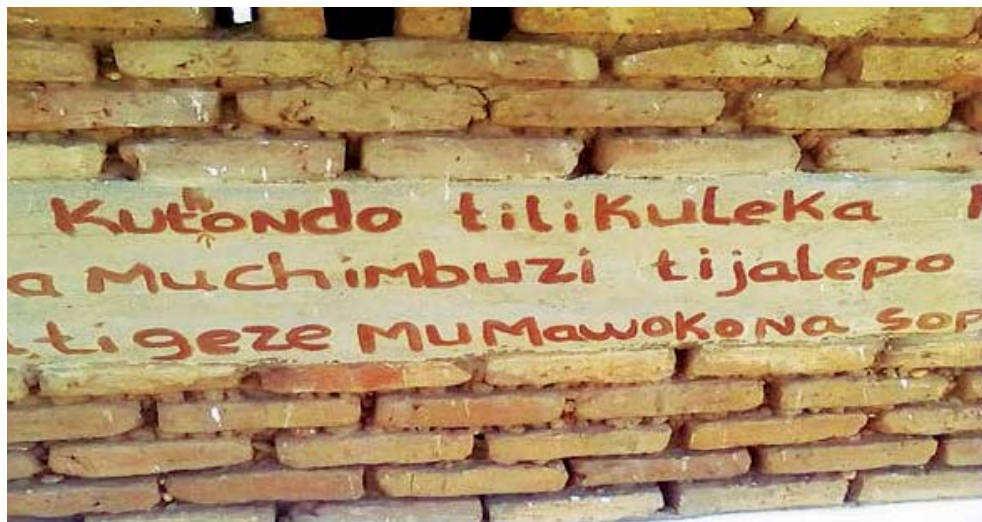 Kutondo tilikuleka
a Muchimbuzi tijalepo
tigeze MuMawokona sop